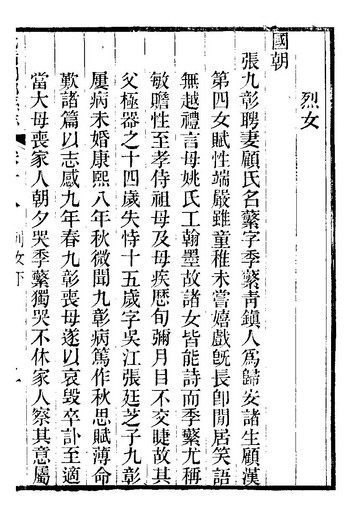 烈女
國朝
張九彰聘妻顧氏名蘩字季蘩青鎮人爲歸安諸生顧漢
第四女賦性端嚴雖童稚未嘗嬉戲旣長卽閒居笑語
無越禮言母姚氏工翰墨故諸女皆能詩而季蘩尤稱
敏贍性至孝侍祖母及母疾歷旬彌月目不交睫故其
父極器之十四歲失恃十五歲字吳江張廷芝子九彰
屢病未婚康熙八年秋微聞九彰病篤作秋思賦薄命
歎諸篇以志感九年春九彰喪母遂以哀毀卒訃至適
當大母喪家人朝夕哭季蘩獨哭不休家人察其意屬
列女下